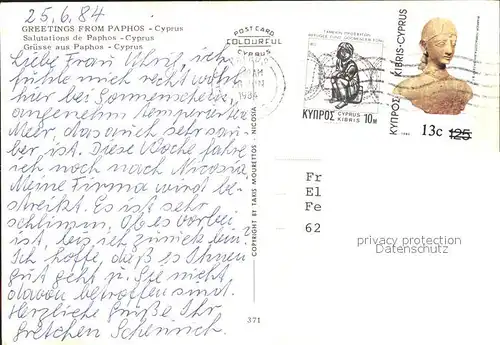 25.6.84
GREETINGS FROM PAPHOS - Cyprus
Salutations de Paphos - Cyprus
Grüsse aus Paphos - Cyprus
Liebe Frau ich
fühle mich recht wohl
hier bei Sonnenschein,
angenehm temperiertem
Meer, das auch sehr sau-
ber ist. Diese Woche fahre
ich noch nach Nicosia,
Meine Firma wird be-
streikt. Es ist sehr
schlimm. Ob es vorbei
ist, bis ich zurück bin?
Ich hoffe, daß es Ihnen
gut geht u. Sie nicht
davon betroffen sind.
Herzliche Grüße Ihr
Gretchen
COPYRIGHT BY TAKIS MOURETTOS - NICOSIA
371
POST CARD
COLOURFUL
CYPRUS
AM
1984
ΚΥΠΡΟΣ
CYPRUS
KIBRIS
10M
ΚΥΠΡΟΣ KIBRIS-CYPRUS
13c 125
Fr
El
Fe
62
privacy protection
Datenschutz